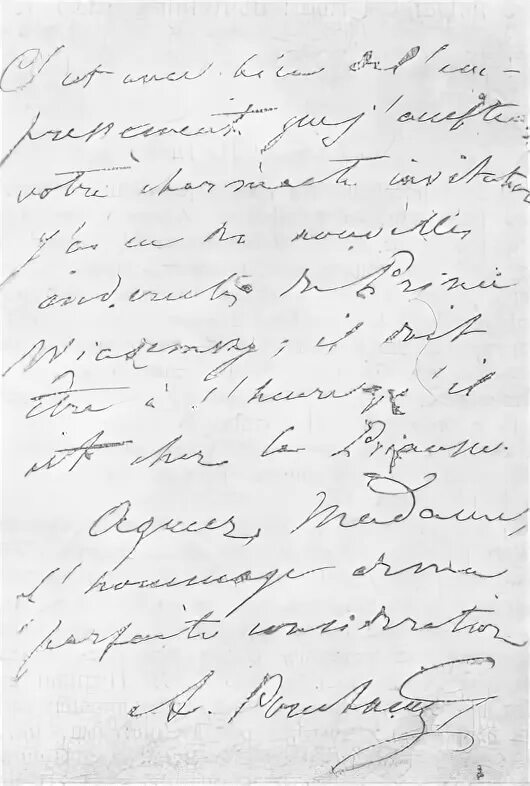 C'est avec bien de l'em-
pressement que j'accepte
votre charmante invitation
J'ai eu des nouvelles
indirectes du Prince
Wiazemsky; il doit
être à l'heure qu'il
est chez la Princesse.
Agreez, Madame,
l'hommage de ma
parfaite consideration
A. Pouchkine